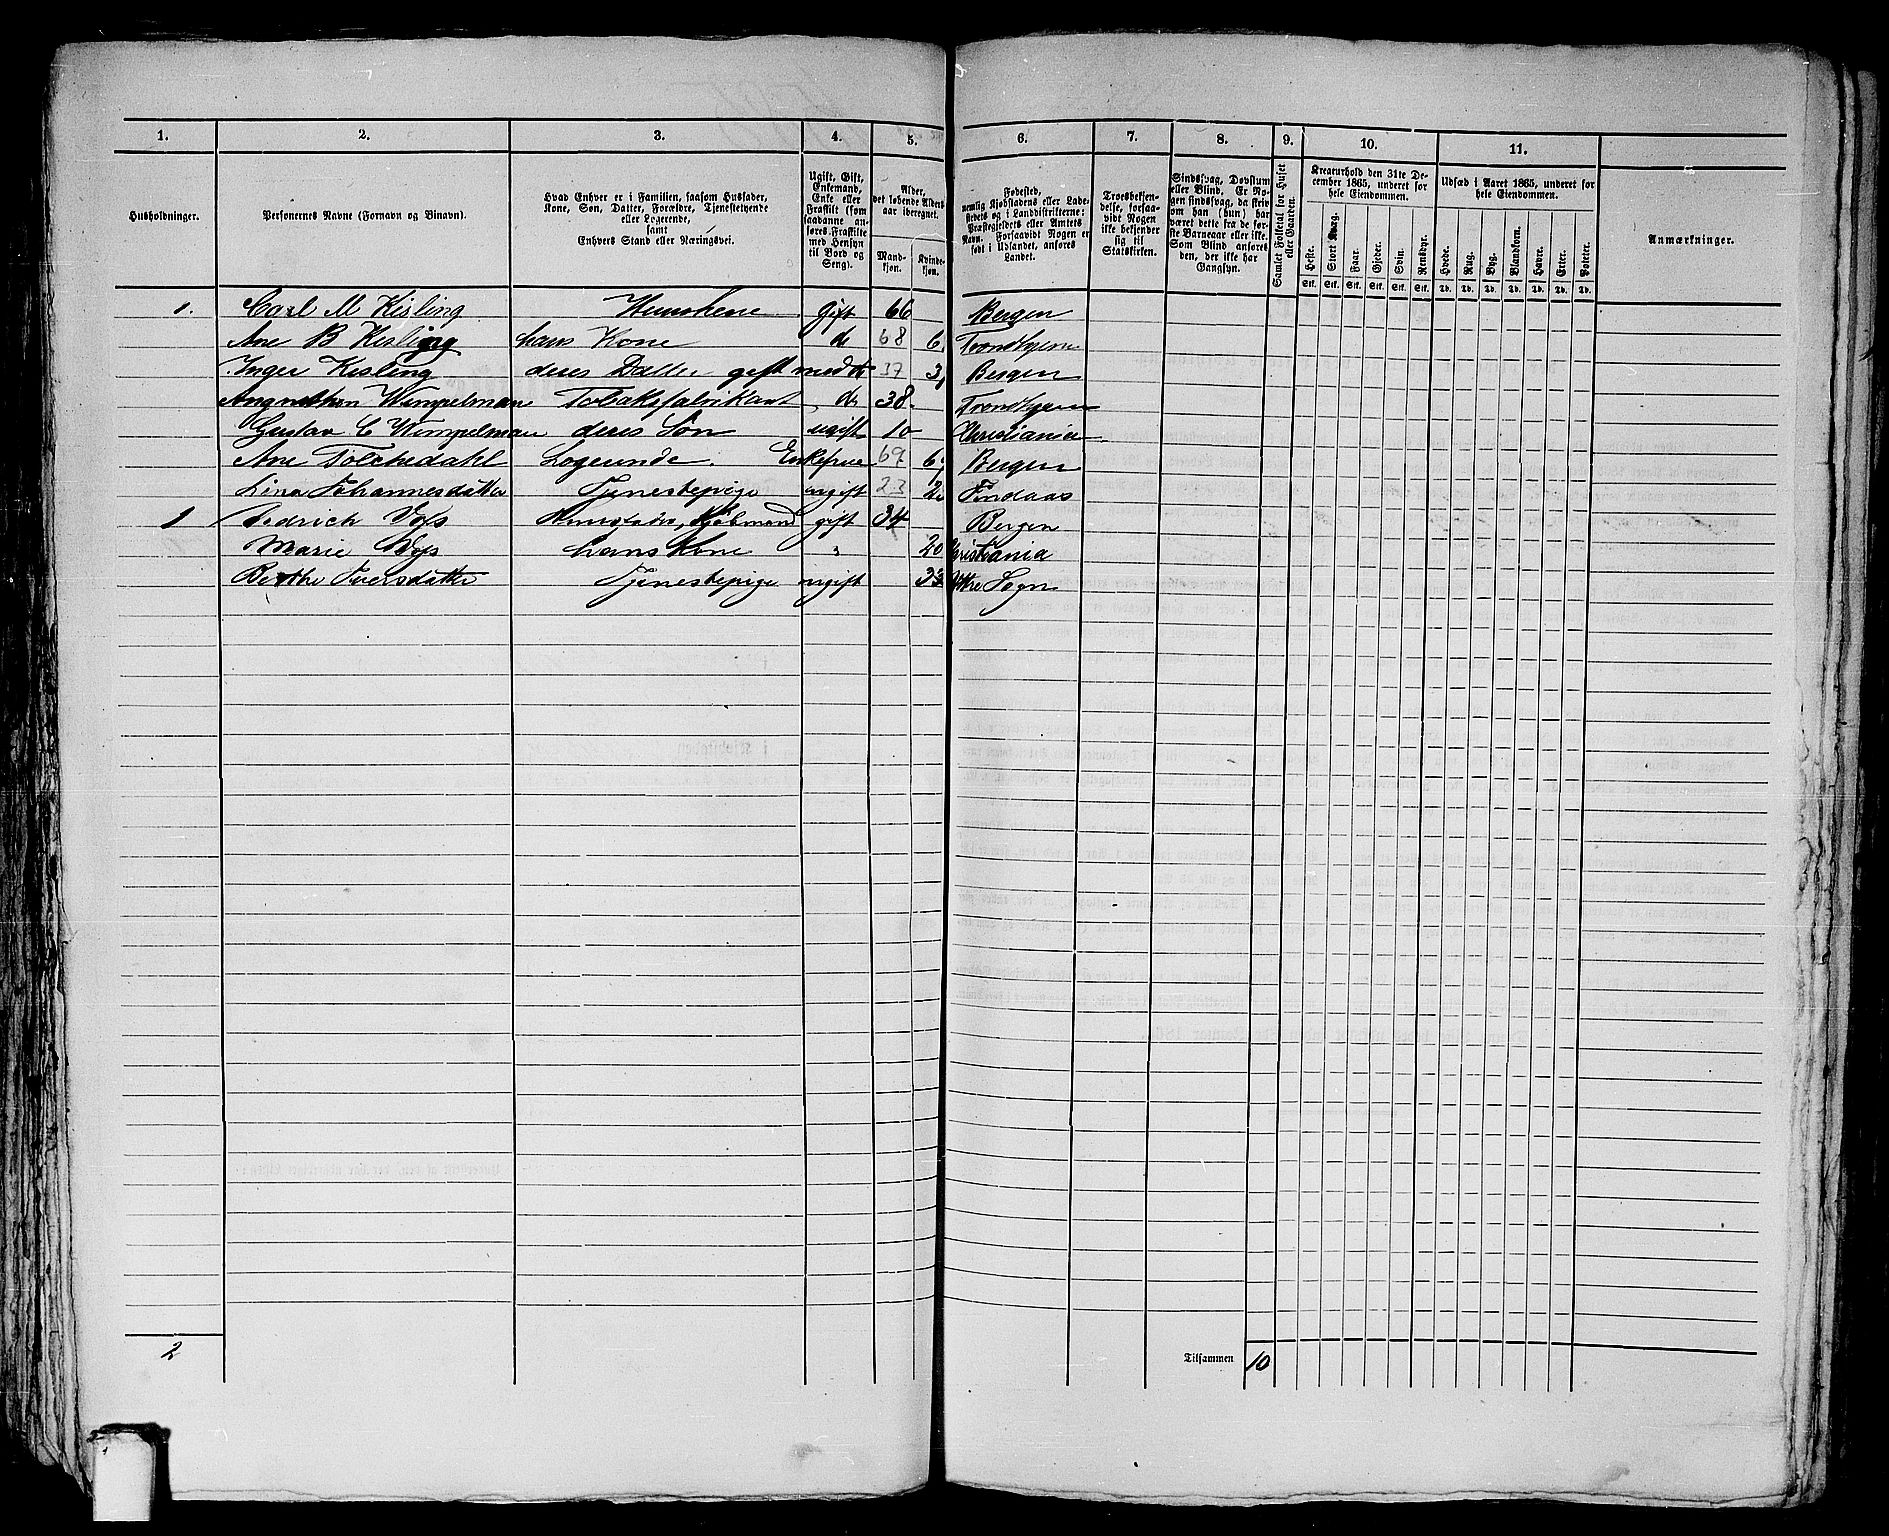 1. 2. 3. 4. 5. 6. 7. 8. 9. 10. 11.
Husholdninger.
Personernes Navne (Fornavn og Binavn).
Hvad Enhver er i Familien, saasom Husfader,
Kone, Søn, Datter, Forældre, Tjenestetyende
eller Logerende,
samt
Enhvers Stand eller Næringsvei.
Ugift, Gift,
Enkemand,
Enke eller
Fraskilt (som
saadanne an-
føres Fraskilte
med Hensyn
til Bord og
Seng).
Alder,
det løbende Alders-
aar iberegnet.
Mand-
kjøn.
Kvinde-
kjøn.
Fødested,
nemlig Kjøbstadens eller Lade-
stedets og i Landdistrikterne:
Præstegjeldets eller Amtets
Navn. Forsaavidt Nogen er
født i Udlandet, anføres
Landet.
Troesbekjen-
delse, forsaa-
vidt Nogen
ikke bekjender
sig til
Statskirken.
Sindssvag, Døvstum
eller Blind. Er No-
gen sindssvag, da skriv
om han (hun) har
været dette fra de før-
ste Barneaar eller ikke.
Som Blind anføres
den, der ikke har
Gangsyn.
Samlet Folketal for Huset
eller Gaarden.
Kreaturhold den 31te De-
cember 1865, underet for
hele Eiendommen.
Heste. Stort Kvæg. Faar. Gjeder. Svin. Rensdyr.
Stk. Stk. Stk. Stk. Stk. Stk.
Udsæd i Aaret 1865, underet for
hele Eiendommen.
Hvede. Rug. Byg. Blandkorn. Havre. Erter. Poteter.
Td. Td. Td. Td. Td. Td. Td.
Anmærkninger.
1. Carl M Kisling gift 66 Bergen
Ane B Kisling hans Kone do 68 6 Trondhjem
Inger Kisling deres Datter gift med 37 3 Bergen
Wimpelman Tobaksfabrikant do 38 Trondhjem
Gustav C Wimpelman deres Søn ugift 10 Christiania
Ane Tolchedahl Logerende. Enkefrue 69 6 Bergen
Lina Johannesdatter Tjenestepige ugift 23 2 Findaas
1 gift 34 Bergen
Marie hans Kone " 20 Christiania
Berthe Iversdatter Tjenestepige ugift Sogn
2 Tilsammen 10